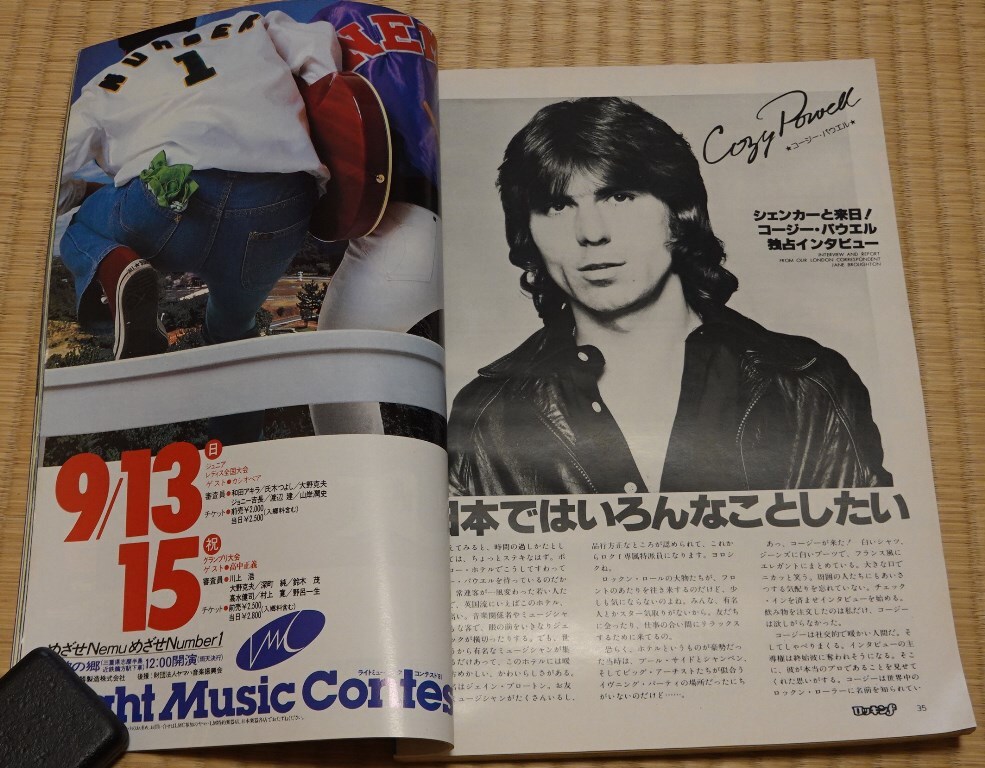 NUMBER
1
9/13
日
ジュニア
レディス全国大会
ゲスト●カシオペア
審査員●和田アキラ/氏木つよし/大野克夫
ジョニー吉長/渡辺 建/山岸潤史
チケット●前売¥2,000(入郷料含む)
当日¥2,500
15
祝
グランプリ大会
ゲスト●高中正義
審査員●川上 浩
大野克夫/深町 純/鈴木 茂
高水健司/村上 寛/野呂一生
チケット●前売¥2,500(入郷料含む)
当日¥2,800
めざせNemuめざせNumber1
の郷(三重県志摩半島 近鉄鵜方駅下車)12:00開演(雨天決行)
製造株式会社 後援:財団法人ヤマハ音楽振興会
LMC
ライトミュージックコンテスト'81
ght Music Contes
Cozy Powell
★コージー・パウエル★
シェンカーと来日!
コージー・パウエル
独占インタビュー
INTERVIEW AND REPORT
FROM OUR LONDON CORRESPONDENT
JANE BROUGHTON
日本ではいろんなことしたい
えてみると、時間の過しかたとし
ては、ちょっとステキなはず。ポ
ー・ホテルでこうしてすわって
ー・パウエルを待っているのだか
常連客が一風変わった若い人た
で、英国流にいえばこのホテル、
高い。音楽関係者やミュージシャ
な客で、眼の前をいきなりジェ
ックが横切ったりする。でも、世
から有名なミュージシャンが集
るだけあって、このホテルには暖
なめかしい、かわいらしさがある。
名はジェイン・ブロートン。お友
ュージシャンがたくさんいるし、
品行方正なところが認められて、これか
らロクf専属特派員になります。ヨロシ
クね。
ロックン・ロールの大物たちが、フロ
ントのあたりを往き来するのだけど、少
しも気にならないのよね。みんな、有名
人とかスター気取りがないから。友だち
に会ったり、仕事の合い間にリラックス
するために来てるの。
恐らく、ホテルというものが豪勢だっ
た当時は、プール・サイドとシャンペン、
そしてビッグ・アーチストたちが似合う
イヴニング・パーティの場所だったにち
がいないのだけど……。
あっ、コージーが来た! 白いシャツ、
ジーンズに白いブーツで、フランス風に
エレガントにまとめている。大きな口で
ニカッと笑う。周囲の人たちにもあいさ
つする気配りを忘れていない。チェック
・インを済ませインタビューを始める。
飲み物を注文したのは私だけ。コージー
は欲しがらなかった。
コージーは社交的で暖かい人間だ。そ
してしゃべりまくる。インタビューの主
導権は終始彼に奪われそうになる。そこ
に、彼が本当のプロであることを見せて
くれた思いがする。コージーは世界中の
ロックン・ローラーに名前を知られてい
ロッキンf
35